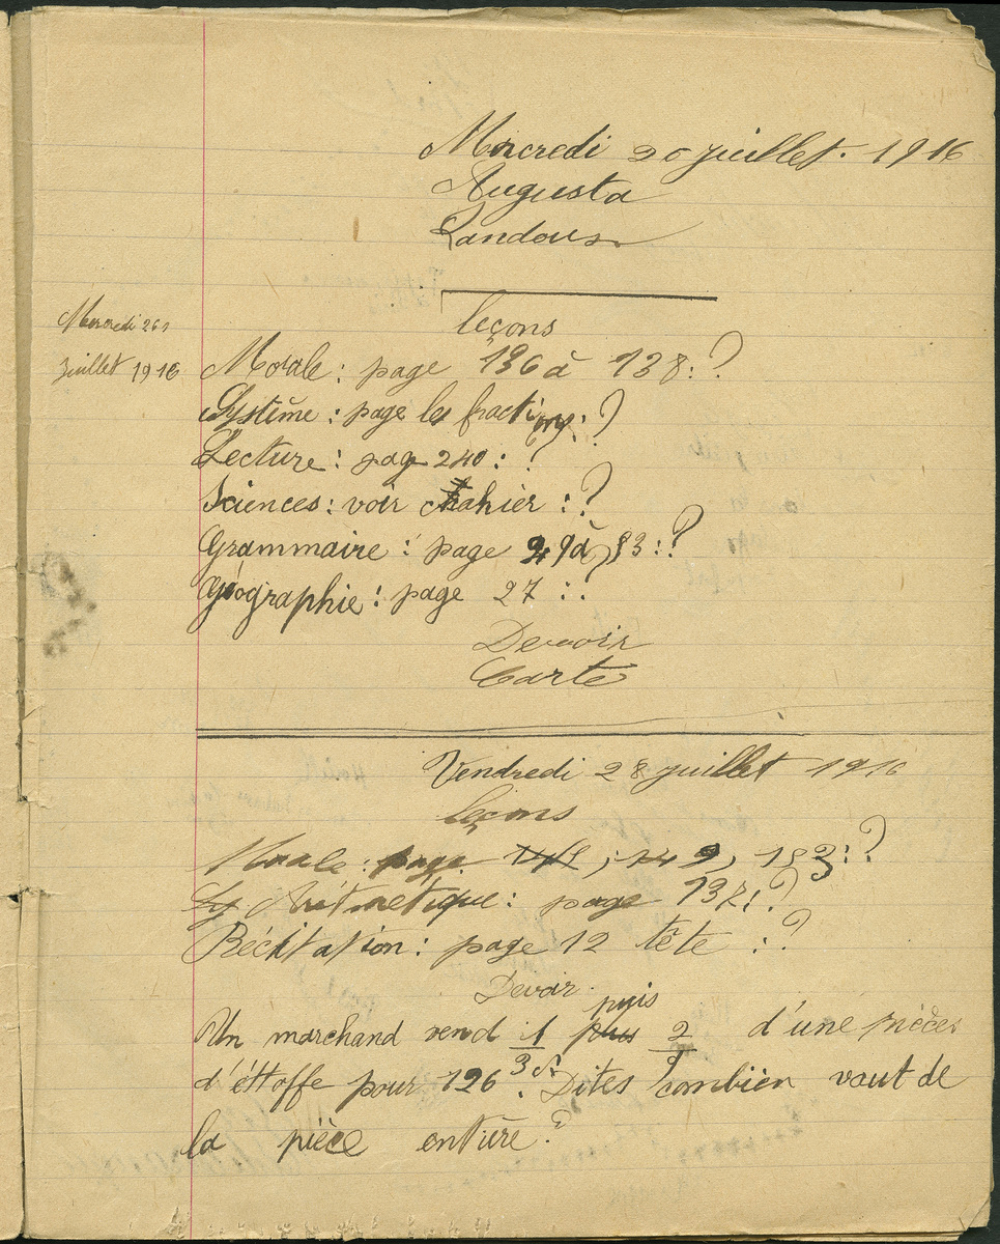 Mercredi 26 juillet. 1916
Augusta
Mercredi 26
juillet 1916
leçons
Morale : page 136 à 138 : ?
Système : page les fractions : ?
Lecture : page 240 : ?
Sciences : voir cahier : ?
Grammaire : page à 83 : ?
Géographie : page 27 : ?
Devoir
Carte
Vendredi 28 juillet 1916
leçons
Morale : page 149, 183 : ?
Aritmetique : page 137 : ?
Récitation : page 12 tête : ?
Devoir.
Un marchand vend 1/3 puis 2/9 d'une pièces
d'éttoffe pour 126 fr. Dites combien vaut de
la pièce entière ?